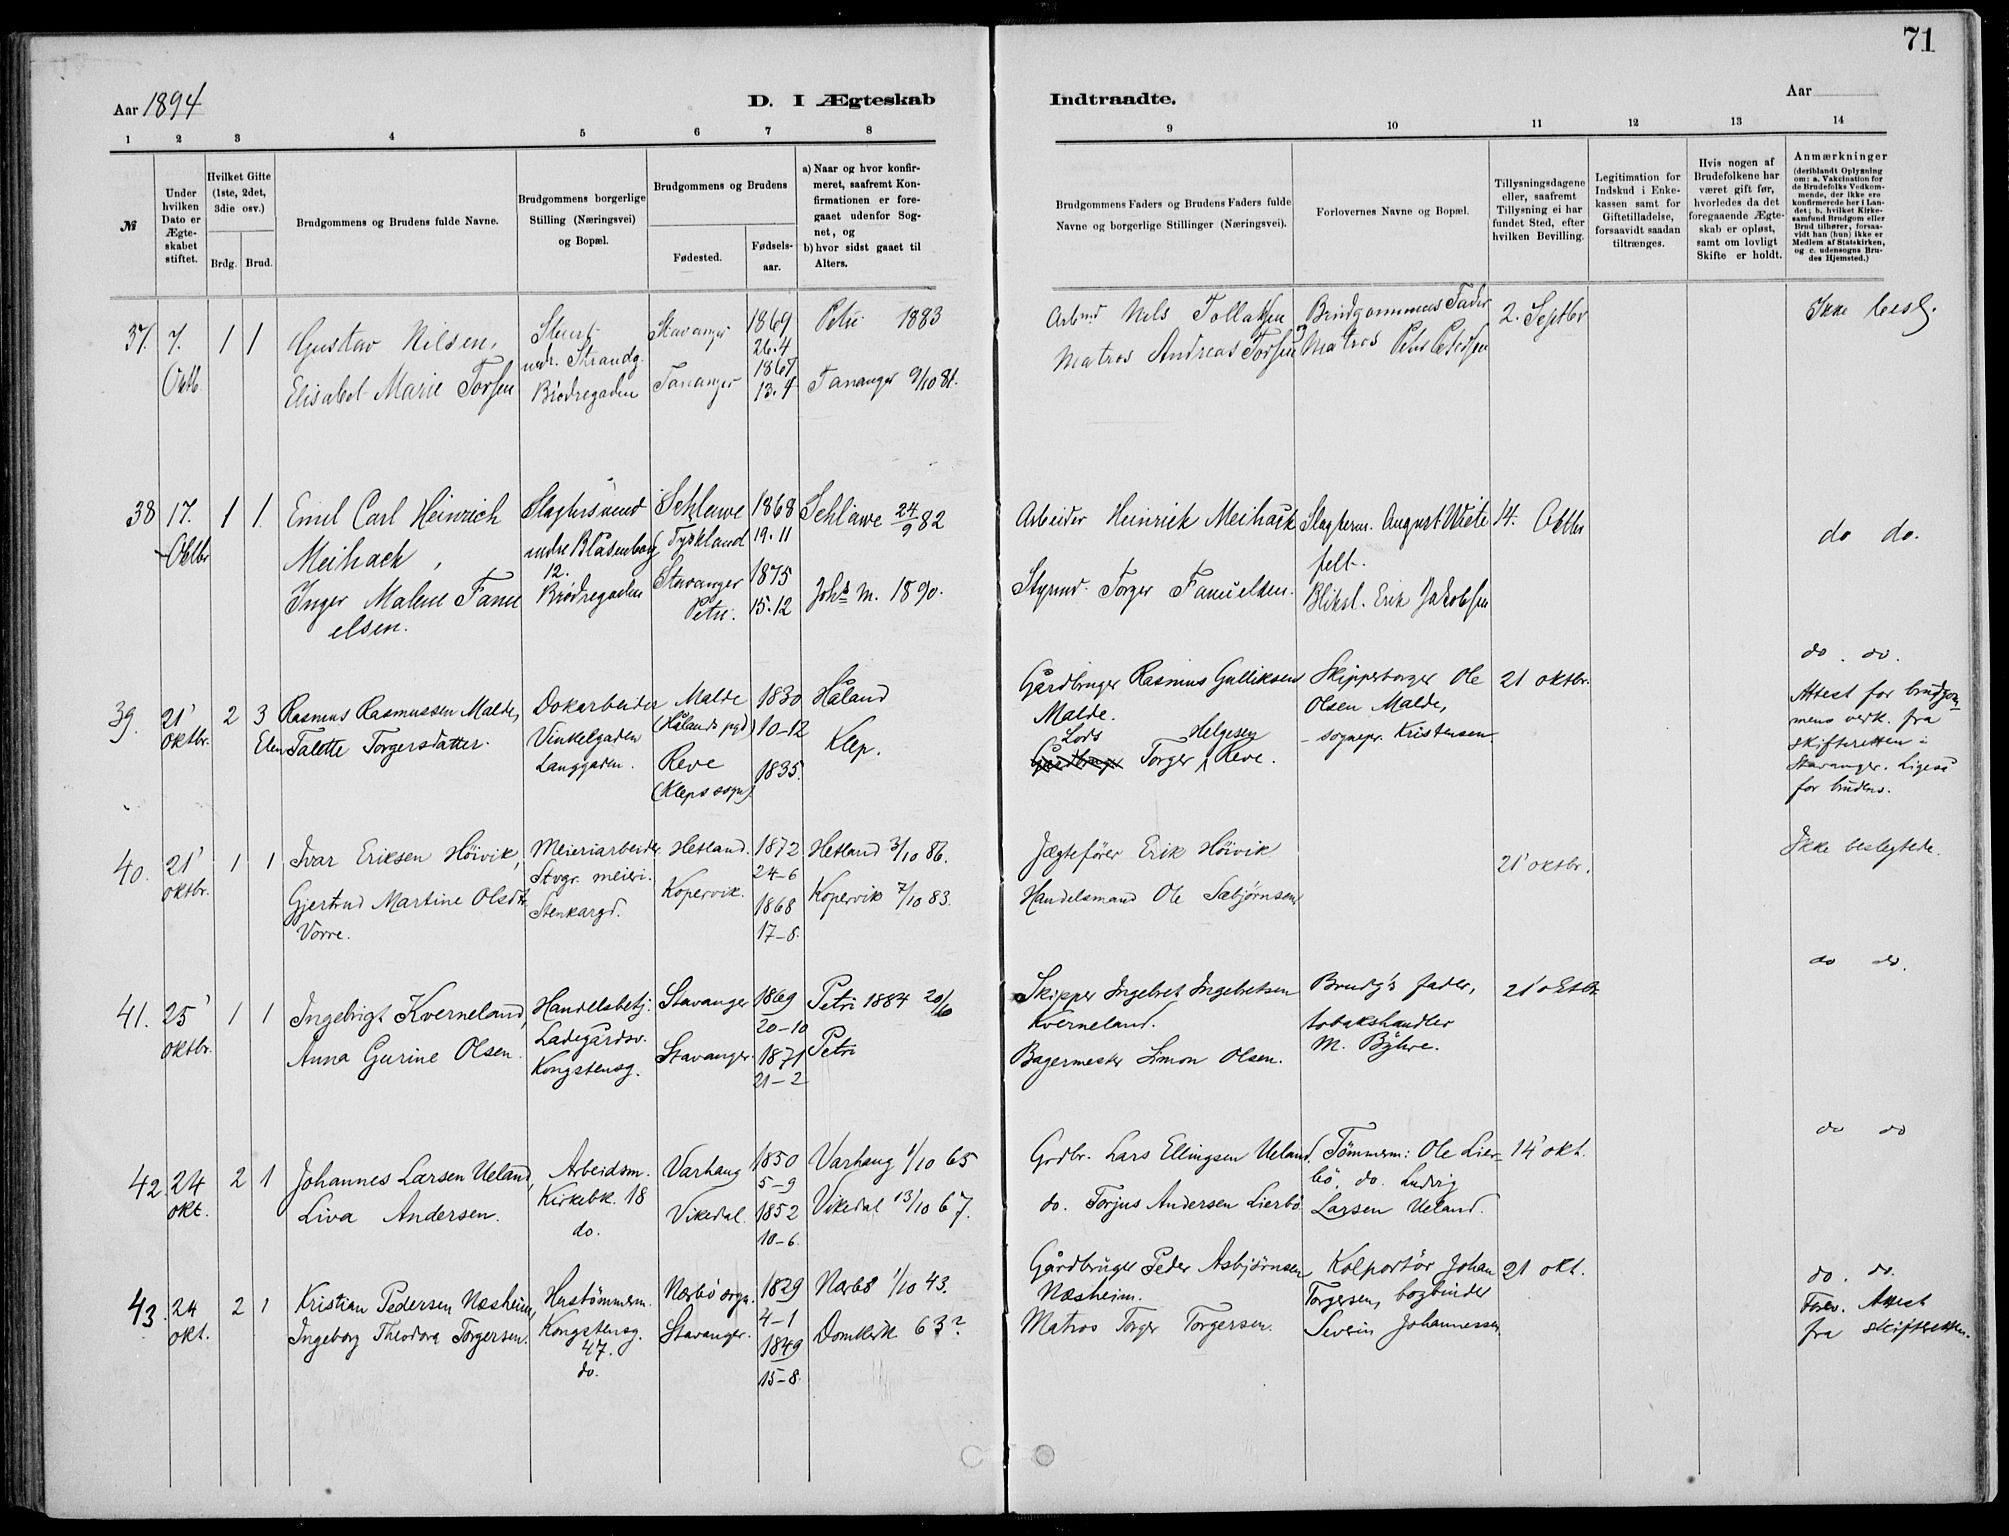 71
Aar 1894
D. I Ægteskab
Indtraadte.
Aar
1 2 3 4 5 6 7 8
9 10 11 12 13 14
№
Under hvilken Dato er Ægteskabet stiftet.
Hvilket Gifte (1ste, 2det, 3die osv.)
Brdg. Brud.
Brudgommens og Brudens fulde Navne.
Brudgommens borgerlige Stilling (Næringsvei) og Bopæl.
Brudgommens og Brudens
Fødested.
Fødsels-aar.
a) Naar og hvor konfirmeret, saafremt Konfirmationen er foregaaet udenfor Sognet, og
b) hvor sidst gaaet til Alters.
Brudgommens Faders og Brudens Faders fulde Navne og borgerlige Stillinger (Næringsvei).
Forlovernes Navne og Bopæl.
Tillysningsdagene eller, saafremt Tillysning ei har fundet Sted, efter hvilken Bevilling.
Legitimation for Indskud i Enkekassen samt for Giftetilladelse, forsaavidt saadan tiltrænges.
Hvis nogen af Brudefolkene har været gift før, hvorledes da det foregaaende Ægteskab er opløst, samt om lovligt Skifte er holdt.
Anmærkninger
(deriblandt Oplysning om: a. Vakcination for de Brudefolks Vedkommende, der ikke ere konfirmerede her i Landet; b. hvilket Kirkesamfund Brudgom eller Brud tilhører, forsaavidt han (hun) ikke er Medlem af Statskirken, og c. udensogns Brudes Hjemsted.)
37. 7. Oktb. 1 1
Gustav Nilsen,
Elisabet Marie Torsen
Stuert
ndr. Strandg.
Brødregaden
Stavanger
Tananger
1869
26.4
1867
13.4
Petri 1883
Tananger 9/10 81.
Arbmd Nils Tollaksen
Matros Andreas Torsen
Brudgommens Fader
Matros Peder Pedersen
2. Septbr
Ikke besl.
38 17. Oktbr 1 1.
Emil Carl Heinrich
Meihack,
Inger Malene Famuelsen.
Slagtersvend
nedre Blåsenborg
12.
Brødregaden
Schlawe
Tyskland
Stavanger
Petri.
1868
19.11
1875
15.12
Schlawe 24/9 82
Johs m. 1890.
Arbeider Heinrik Meihack
Styrmd. Torger Famuelsen.
Slagterm. August Wietefelt.
Bliksl. Erik Jakobsen
14. Oktbr
do do.
39. 21' oktbr. 2 3
Rasmus Rasmussen Malde,
Talette Torgersdatter.
Dokarbeider
Vinkelgaden
Langgaden.
Malde
(Hålands pgd)
Reve
(Kleps sogn)
1830
10-12
1835.
Håland
Klep.
Gårdbruger Rasmus Gulliksen
Malde.
Lods Helgesen
Torger Reve.
Skipperborger Ole
Olsen Malde,
sognepr. Kristensen.
21 oktbr.
do. do.
Attest for brudgommens verk. fra
skifteretten i
Stavanger. Ligeså
for brudens.
40. 21' oktbr. 1 1
Ivar Eriksen Höivik,
Gjertrud Martine Olsdtr
Vorre.
Meieriarbeider
Stvgr. meieri.
Stenkargd.
Hetland.
Kopervik.
1872
24-6
1868
17-8.
Hetland 3/10 86.
Kopervik 7/10 83.
Jægtefører Erik Höivik
Handelsmand Ole Sæbjørnsen
21' oktbr.
Ikke beslegtede.
41. 25' oktbr. 1 1
Ingebrigt Kverneland,
Anna Gurine Olsen.
Handelsbetj.
Ladegårdsv.
Kongstensg.
Stavanger
Stavanger.
1869
20-10
1871
21-2
Petri 1884 20/10
Petri
Skipper Ingebret Ingebretsen
Kverneland.
Bagermester Simon Olsen.
Brudg's fader,
tobakshandler
M. Byhre.
21' oktbr
do do.
42. 24 okt. 2 1
Johannes Larsen Ueland,
Liva Andersen.
Arbeidsm.
Kirkebk. 18
do.
Varhaug
Vikedal.
1850
5-9
1852
10-6.
Varhaug 1/10 65
Vikedal 13/10 67.
Grdbr. Lars Ellingsen Ueland.
do. Torjus Andersen Lierbö.
Tömmerm: Ole Lierbö, do. Ludvig
Larsen Ueland.
14' okt.
do do
43. 24 okt. 2 1
Kristian Pedersen Næsheim,
Ingeborg Theodora Torgersen.
Hustömmerm.
Kongstensg.
47.
do.
Nærbö sogn.
Stavanger.
1829
4-1
1849
15-8.
Nærbö 1/10 43.
Domkirk 63?
Gårdbruger Peder Asbjörnsen
Næsheim.
Matros Torger Torgersen.
Kolportör Johan
Torgersen, bogbinder
Severin Johannessen
21 okt.
do. do.
Forev. Attest
fra skifteretten.